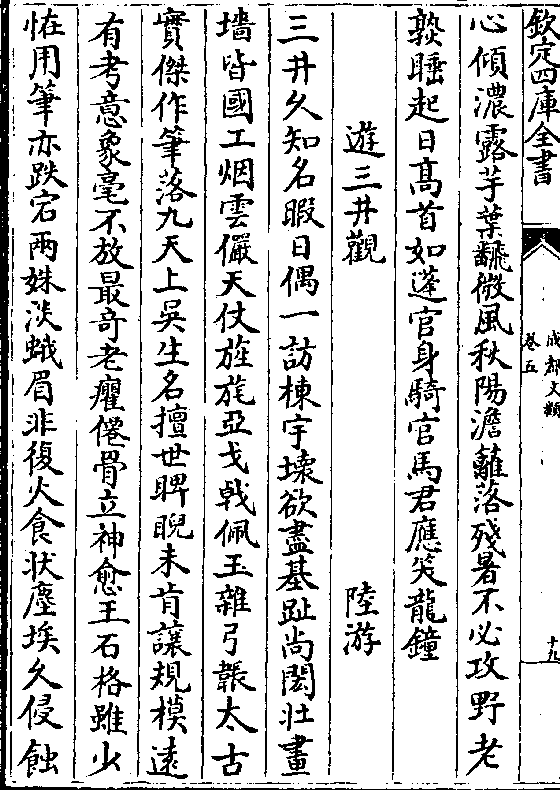 欽定四庫全書
成都文類
卷五
十九
心傾濃露芋葉飜微風秋陽澹蘺落殘暑不必攻野老
欵睡起日髙首如蓬官身騎官馬君應笑龍鐘
遊三井觀
陸游
三井久知名暇日偶一訪棟宇壊欲盡基趾尚閎壯畫
墻皆國工烟雲儼天仗旌旄亞戈戟佩玉雜弓韔太古
實傑作筆落九天上吳生名擅世睥睨未肯讓規模逺
有考意象毫不放最竒老癯僊骨立神愈王石格雖少
恠用筆亦跌宕兩姝淡蛾眉非復火食狀塵埃久侵蝕